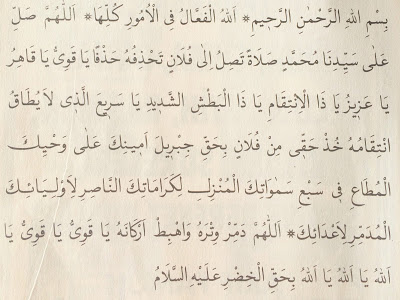 بِسْمِ اللهِ الرَّحْمٰنِ الرَّحٖيمِ * اَللهُ الْفَعَّالُ فِى الْاُمُورِ كُلِّهَا * اَللّٰهُمَّ صَلِّ
عَلٰى سَيِّدِنَا مُحَمَّدٍ صَلَاةً تَصِلُ اِلٰى فُلَانٍ تَحْذِفُهُ حَذْفًا يَا قَوِىُّ يَا قَاهِرُ
يَا عَزٖيزُ يَا ذَا الْاِنْتِقَامِ يَا ذَا الْبَطْشِ الشَّدٖيدِ يَا سَرٖيعَ الَّذٖى لَايُطَاقُ
انْتِقَامُهُ خُذْ حَقّٖى مِنْ فُلَانٍ بِحَقِّ جِبْرٖيلَ اَمٖينِكَ عَلٰى وَحْيِكَ
الْمُطَاعِ فٖى سَبْعِ سَمٰوَاتِكَ الْمُنْزِلِ لِكَرَامَاتِكَ النَّاصِرِ لِاَوْلِيَائِكَ
الْمُدَمِّرِ لِاَعْدَائِكَ * اَللّٰهُمَّ دَمِّرْ وِتْرَهُ وَاهْبِطْ اَرْكَانَهُ يَا قَوِىُّ يَا قَوِىُّ يَا
اَللهُ يَا اَللهُ يَا اَللهُ بِحَقِّ الْخِضْرِ عَلَيْهِ السَّلَامُ